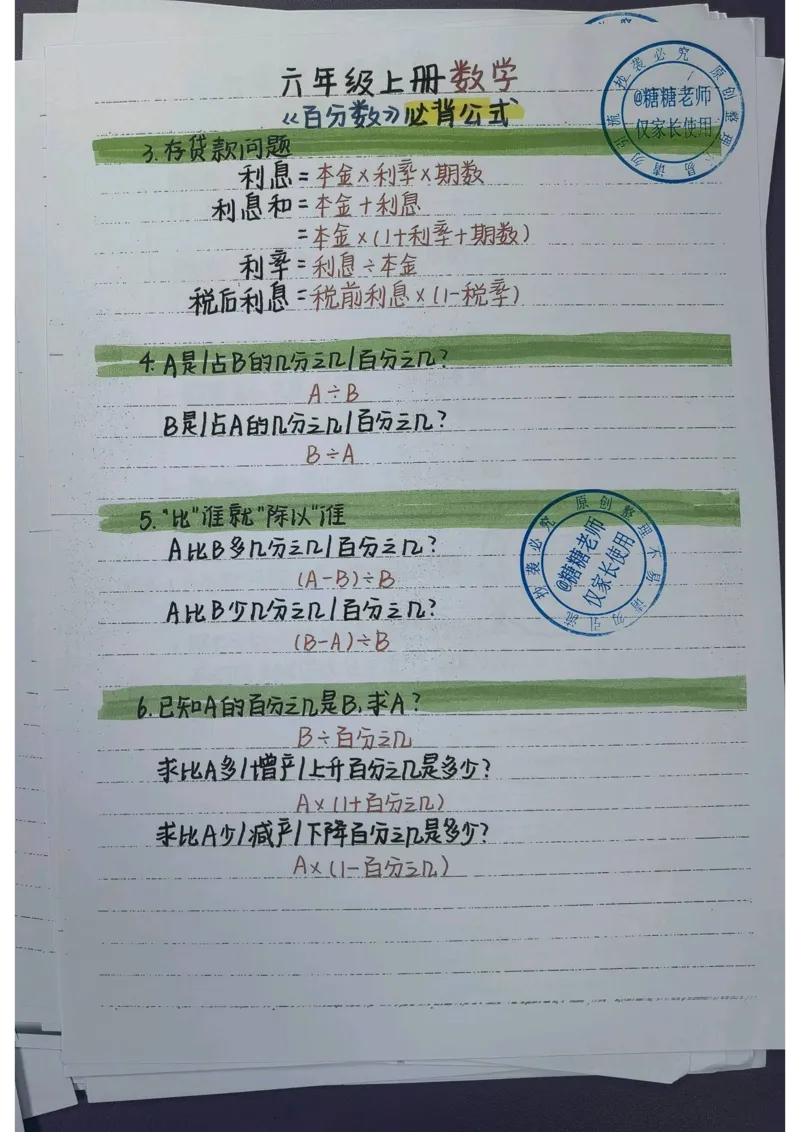 六年级上册数学
《百分数》必背公式
抄袭必究 原创整理不易 请勿引流
@糖糖老师
仅家长使用
3.存贷款问题
利息=本金×利率×期数
利息和=本金+利息
=本金×(1+利率+期数)
利率=利息÷本金
税后利息=税前利息×(1-税率)
4.A是/占B的几分之几/百分之几?
A÷B
B是/占A的几分之几/百分之几?
B÷A
5."比"谁就"除以"谁
A比B多几分之几/百分之几?
(A-B)÷B
A比B少几分之几/百分之几?
(B-A)÷B
抄袭必究 原创整理不易 请勿引流
@糖糖老师
仅家长使用
6.已知A的百分之几是B,求A?
B÷百分之几
求比A多/增产/上升百分之几是多少?
A×(1+百分之几)
求比A少/减产/下降百分之几是多少?
A×(1-百分之几)